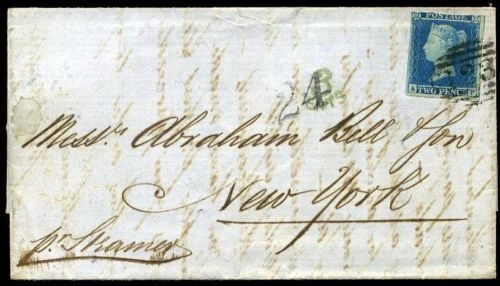 POSTAGE
TWO PENCE
24
Messrs Abraham Bell & Son
New York
pr Steamer